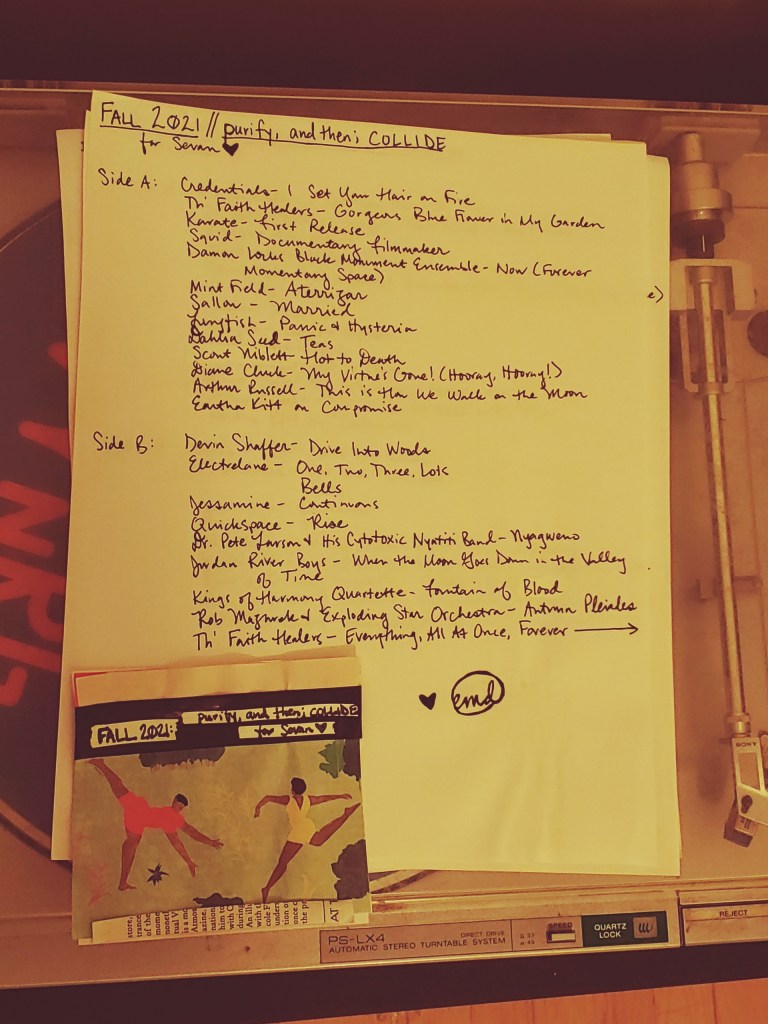 FALL 2021 // purify, and then; COLLIDE
for Sevan ♥
Side A: Credentials - I Set Your Hair on Fire
Th' Faith Healers - Gorgeous Blue Flower in My Garden
Karate - First Release
Squid - Documentary Filmmaker
Damon Locks Black Monument Ensemble - Now (Forever
Momentary Space)
Mint Field - Aterrizar
Sallow - Married
Lungfish - Panic & Hysteria
Dahlia Seed - Teas
Scout Niblett - Hot to Death
Diane Cluck - My Virtue's Gone! (Hooray, Hooray!)
Arthur Russell - This is How We Walk on the Moon
Eartha Kitt on Compromise
Side B: Devin Shaffer - Drive Into Woods
Electrelane - One, Two, Three, Lots
Bells
Jessamine - Continuous
Quickspace - Rise
Dr. Pete Larson & His Cytotoxic Nyatiti Band - Nyagweno
Jordan River Boys - When the Moon Goes Down in the Valley
of Time
Kings of Harmony Quartette - Fountain of Blood
Rob Mazurek & Exploding Star Orchestra - Autumn Pleiades
Th' Faith Healers - Everything, All At Once, Forever →
♥ emd
e)
FALL 2021: purify, and then; COLLIDE
for Sevan ♥
store,
trance
of the
mome
moneti
rual V
is a mo
Almon
azine,
nation
him to
with C
during
An illu
with th
cole F
unders
tion o
once c
the p
AT T
PS-LX4 DIRECT DRIVE
AUTOMATIC STEREO TURNTABLE SYSTEM
33
45
SPEED
QUARTZ
LOCK
REJECT
SONY